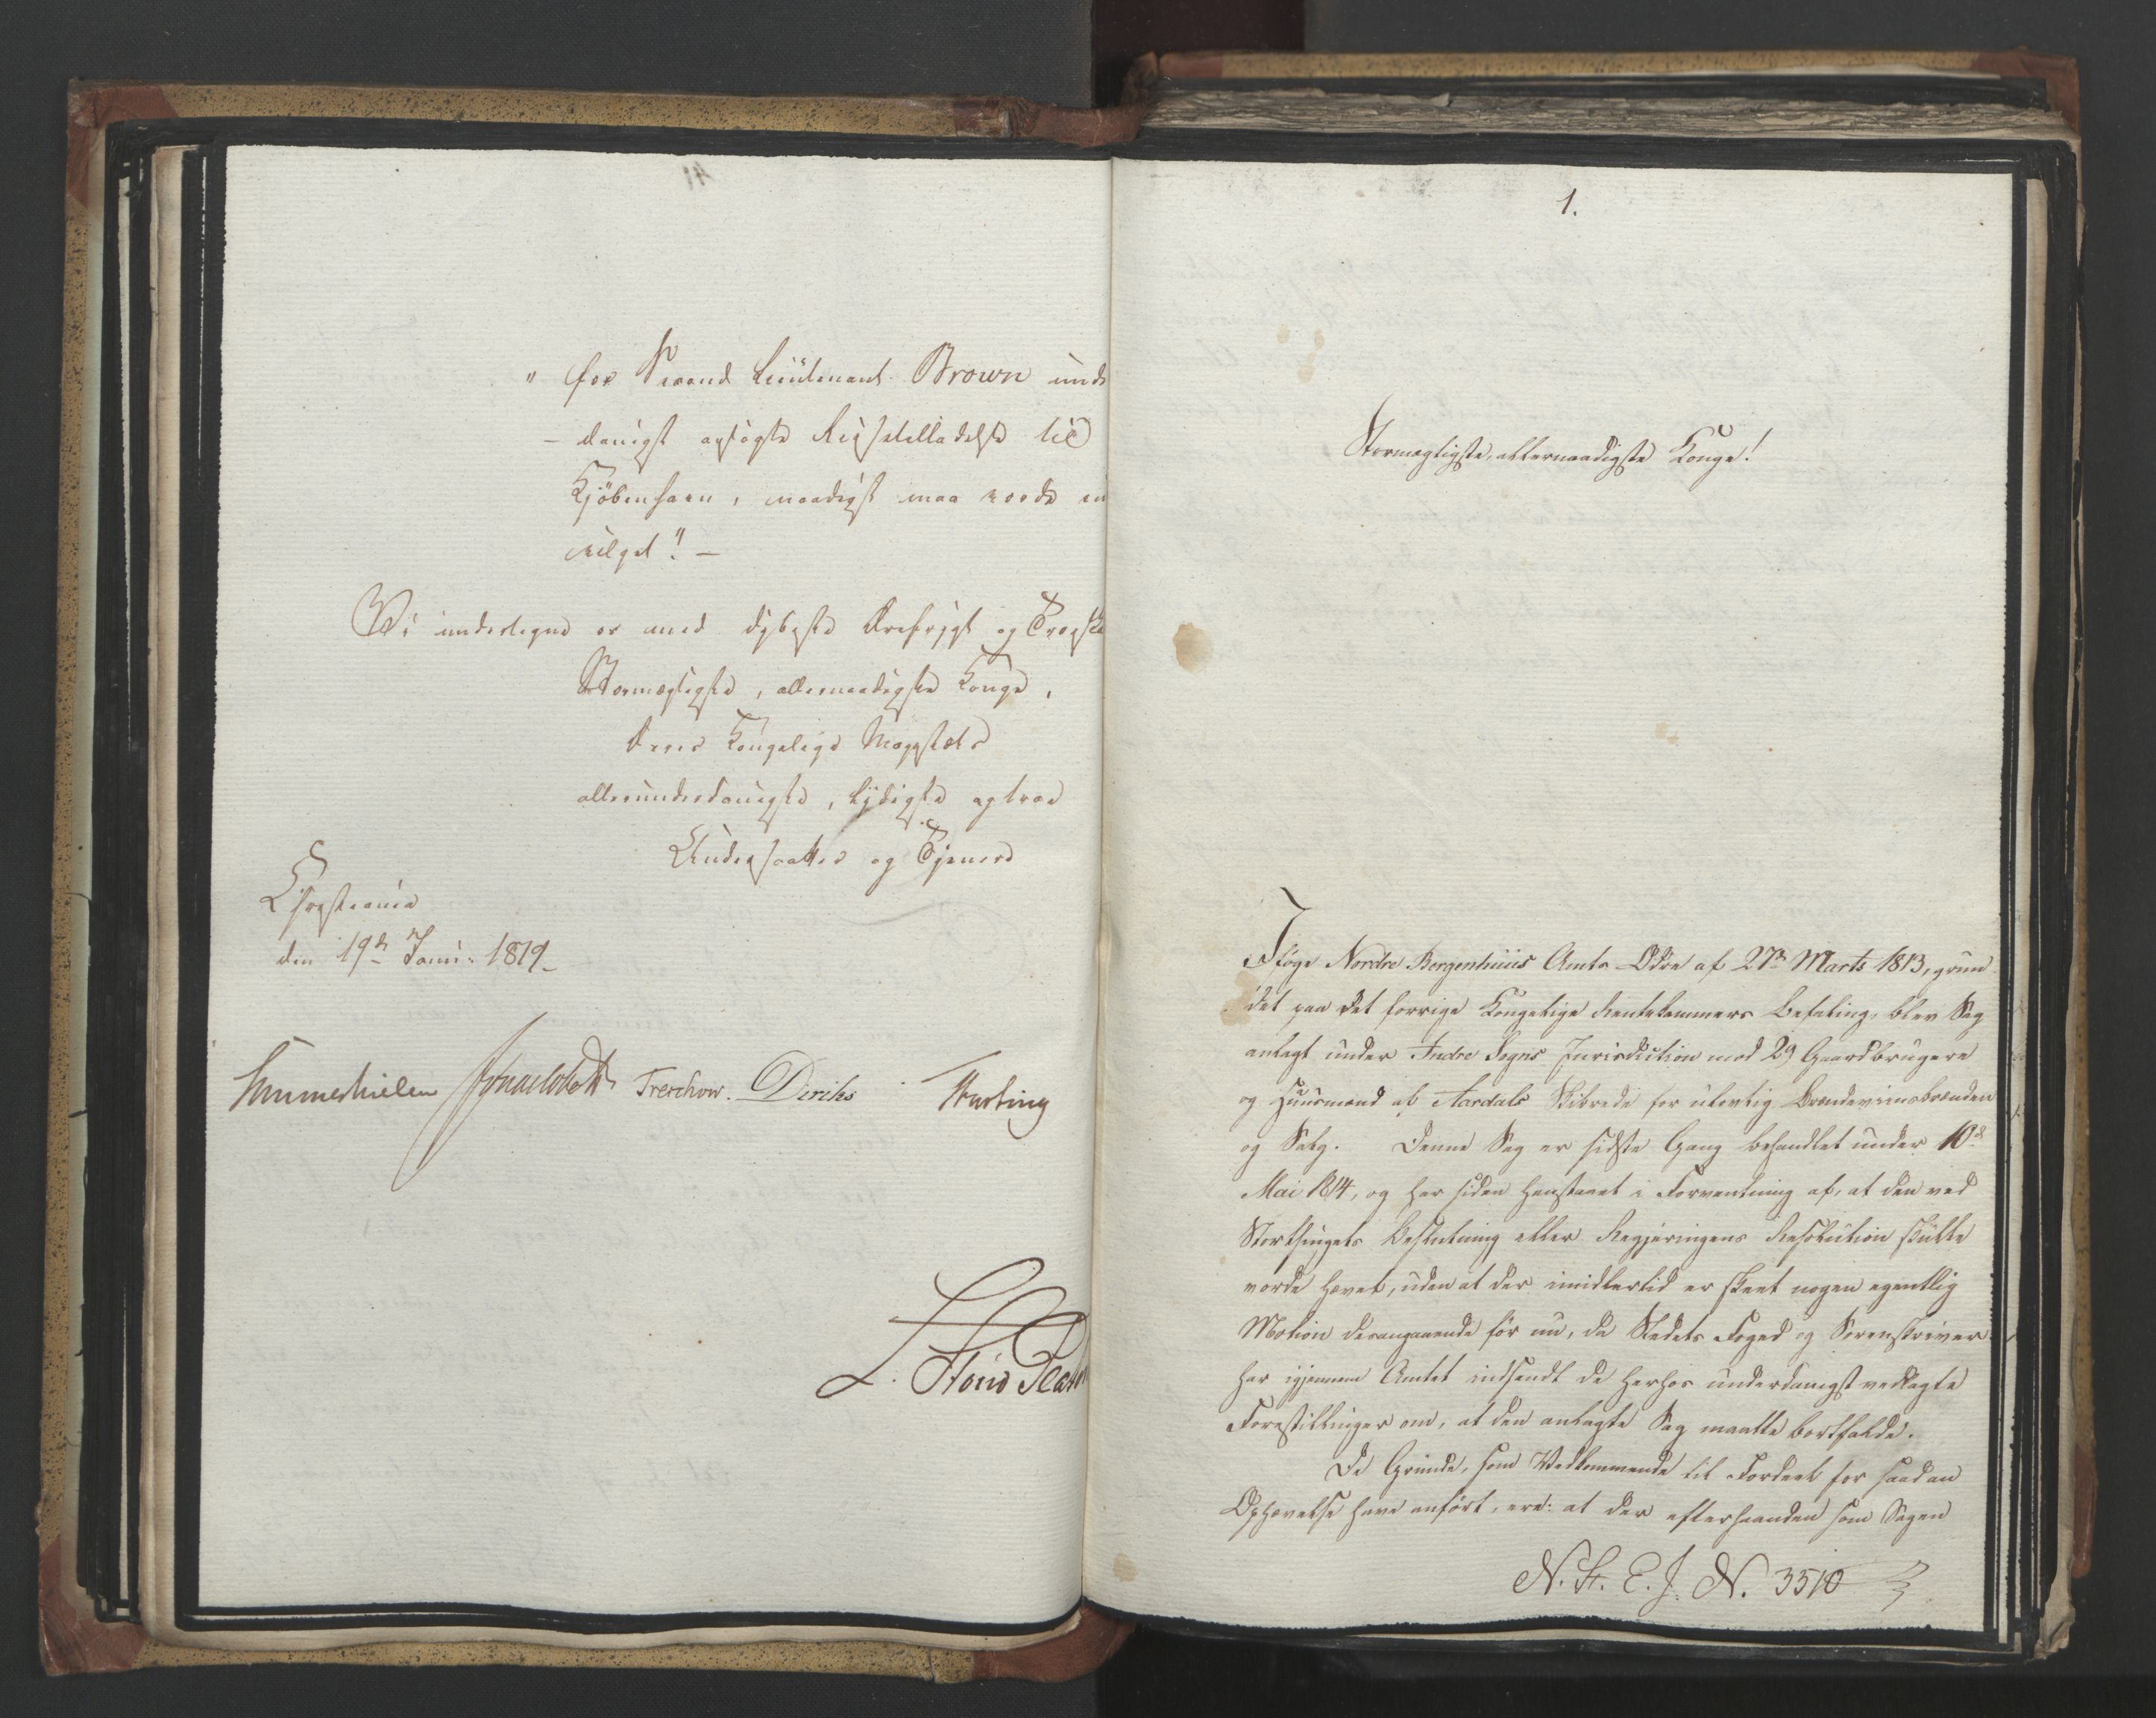 " for Second Lieutenant Brown unde
- danigst ansøgte Reisetilladelse til
Kjöbenhavn, naadigst maa vorde en
vilget!" -
Vi undertegne os med dybeste Ærefrygt og Troeska
Stormægtigste, allernaadigste Konge,
Deres Kongelige Majestæts
allerunderdanigste, lydigste og troe
Undersaatter og Tjenere
Christiania
den 19de Juni 1819.
Sommerhielm Treschow. Diriks
L. Stoud Platou
1.
Stormægtigste, allernaadigste Konge!
Ifølge Nordre Bergenhuus Amts Ordre af 27de Marts 1813, grun
det paa det forrige Kongelige Rentekammers Befaling, blev Sag
anlagt under Indre Sogns Jurisdiction mod 29 Gaardbrugere
og Huusmænd af Aardals Skibrede for ulovlig Brændeviinsbrænden
og Salg. Denne Sag er sidste Gang behandlet under 10de
Mai 1814, og har siden henstaaet i Forventning af, at den ved
Storthingets Beslutning eller Regjeringens Resolution skulle
vorde hævet, uden at der imidlertid er skeet nogen egentlig
Motion desangaaende før nu, da Stedets Foged og Sorenskriver
har igjennem Amtet indsendt de herhos underdanigst vedlagte
Forestillinger om, at den anlagte Sag maatte bortfalde.
De Grunde, som Vedkommende til Fordeel for saadan
Ophævelse have anført, ere: at der efterhaanden som Sagen
N. St. E. J. N. 3510